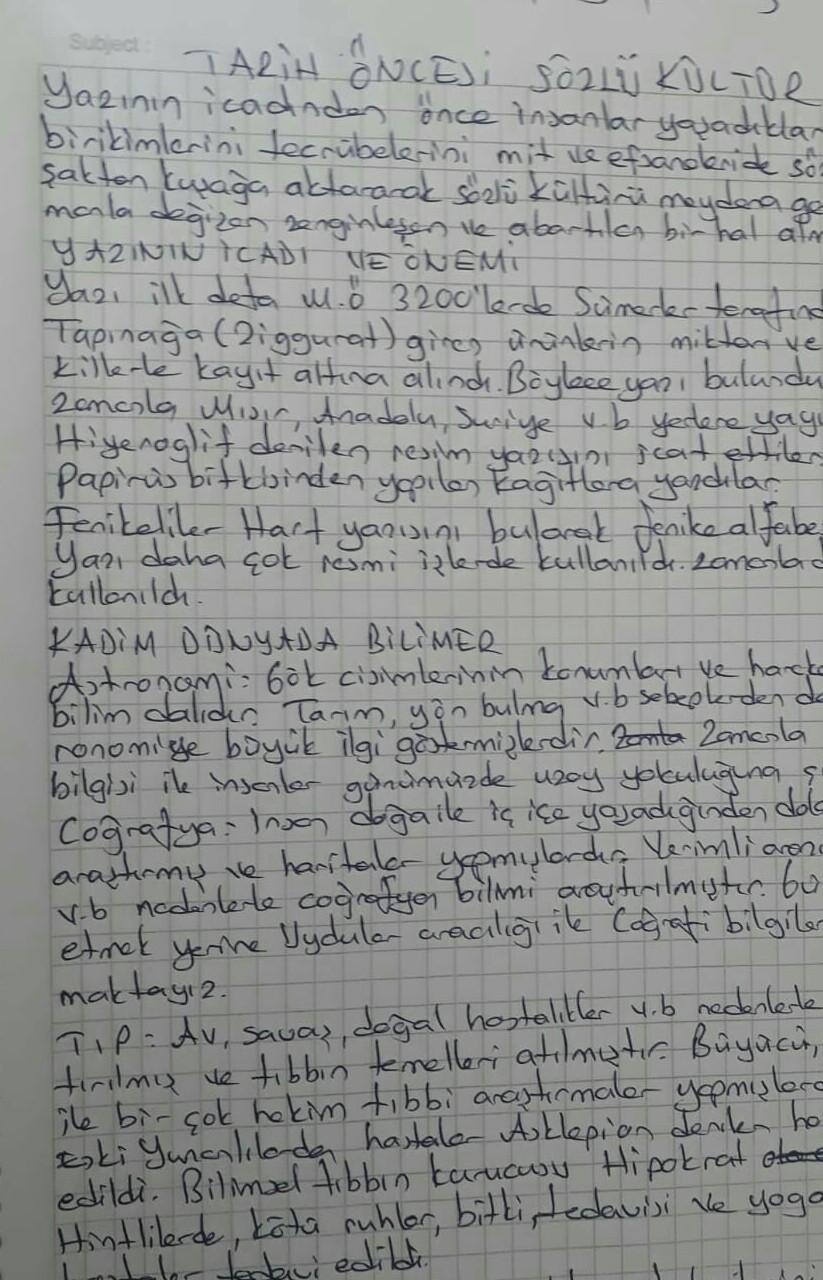 Subject:
TARİH ÖNCESİ SÖZLÜ KÜLTÜR
Yazının icadından önce insanlar yaşadıkları
birikimlerini tecrübelerini mit ve efsaneleride sö
şaktan kuşağa aktararak sözlü kültürü meydana ge
manla değişen zenginleşen ve abartılan bir hal alm
YAZININ İCADI VE ÖNEMİ
Yazı ilk defa M.Ö 3200'lerde Sümerler tarafınd
Tapınağa (Ziggurat) giren ürünlerin miktarı ve
killerle kayıt altına alındı. Böylece yazı bulundu
zamanla Mısır, Anadolu, Suriye v.b yerlere yayı
Hiyeroglif denilen resim yazısını icat ettiler
Papirüs bitkisinden yapılan kağıtlara yazdılar.
Fenikeliler Harf yazısını bularak fenike alfabe
Yazı daha çok resmi işlerde kullanıldı. zamanla d
kullanıldı.
KADİM DÜNYADA BİLİMER
Astronomi: Gök cisimlerinin konumları ve hareke
bilim dalıdır. Tarım, yön bulma v.b sebeplerden do
ronomi'ye büyük ilgi göstermişlerdir. Zamanla
bilgisi ile insanlar günümüzde uzay yolculuğuna ç
Coğrafya: İnsan doğa ile iç içe yaşadığından dola
araştırmış ve haritalar yapmışlardır. Verimli arazi
v.b nedenlerle coğrafya bilimi araştırılmıştır. Gü
etmek yerine Uydular aracılığı ile Coğrafi bilgiler
maktayız.
TIP: Av, savaş, doğal hastalıklar v.b nedenlerle
tırılmış ve tıbbın temelleri atılmıştır. Büyücü,
ile bir çok hekim tıbbi araştırmalar yapmışlard
Eski Yunanlılarda hastalar Asklepion denilen ha
edildi. Bilimsel tıbbın kurucusu Hipokrat
Hintlilerde, kötü ruhlar, bitki, tedavisi ve yoga
tedavi edildi.